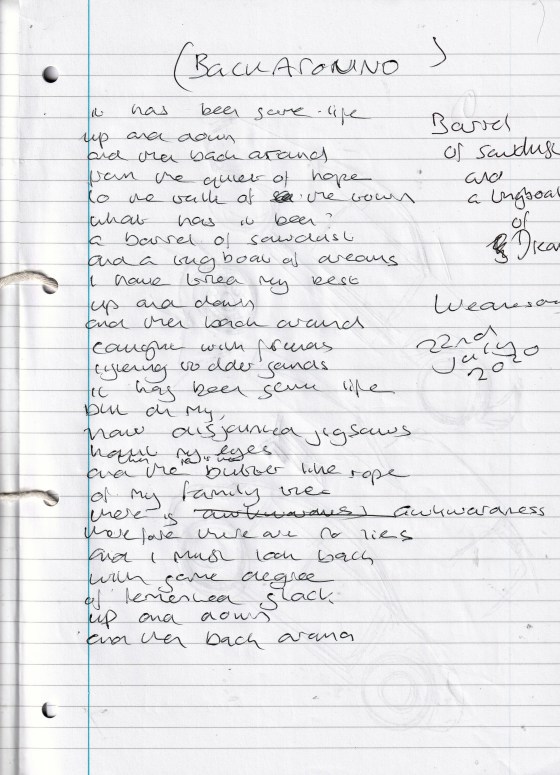 (BACK AROUND)
it has been some life
up and down
and then back around
from the quiet of hope
to the walk of the town
what has it been?
a barrel of sawdust
and a longboat of dreams
I have tried my best
up and down
and then back around
caught with friends
listening to older sands
it has been some life
but oh my,
how disjointed jigsaws
haunt my eyes
and the rubber like rope
of my family tree
there is awkwardness awkwardness
therefore there are no lies
and I must look back
with some degree
of demented slack
up and down
and then back around
Barrel
of sawdust
and
a longboat
of
Drea
Wednesda
22nd
July
2020